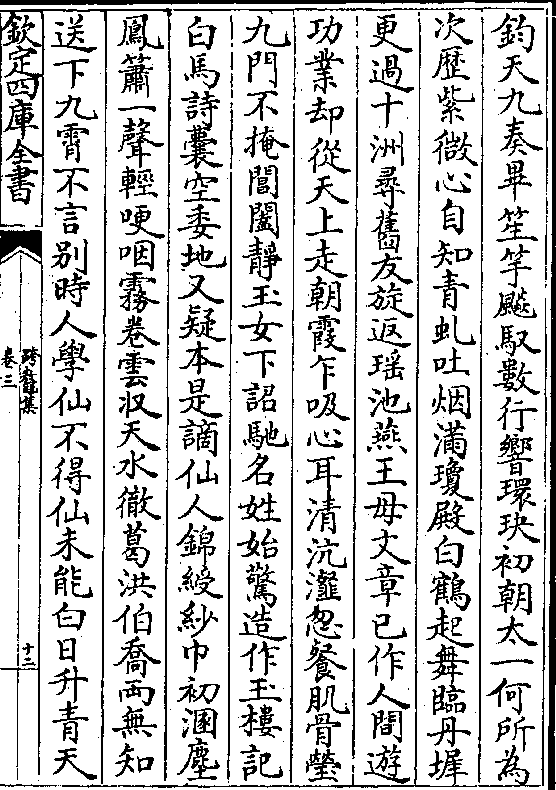 鈞天九奏畢笙竽飈馭數行響環玦初朝太一何所為
次歷紫微心自知青虬吐烟滿瓊殿白鶴起舞臨丹墀
更過十洲尋舊友旋返瑶池燕王母文章已作人間遊
功業却從天上走朝霞乍吸心耳清沆瀣忽餐肌骨瑩
九門不掩閶闔靜玉女下詔馳名姓始驚造作玉樓記
白馬詩囊空委地又疑本是謫仙人錦綬紗巾初溷塵
鳳簫一聲輕哽咽霧卷雲収天水徹葛洪伯喬兩無知
送下九霄不言别時人學仙不得仙未能白日升青天
欽定四庫全書
跨鼇集
卷三
十二